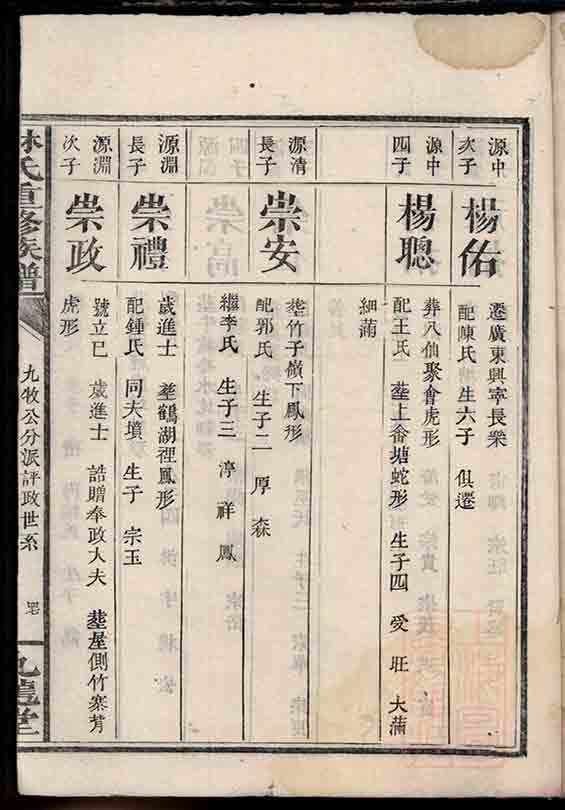 源中
次子
楊佑
遷廣東興寧長樂
配陳氏 生六子 俱遷
源中
四子
楊聰
葬八仙聚會虎形
配王氏 塟上畬塘蛇形 生子四 受 旺 大蒲
細蒲
源清
長子
崇安
塟竹子嶺下鳳形
配郭氏 生子二 厚 森
繼李氏 生子三 淳 祥 鳳
源淵
長子
崇禮
歲進士 塟鶴湖裡鳳形
配鍾氏 同夫墳 生子 宗玉
源淵
次子
崇政
號立巳 歲進士 誥贈奉政大夫 塟屋側竹寨背
虎形
林氏重修族譜
九牧公分派評政世系
九龍堂